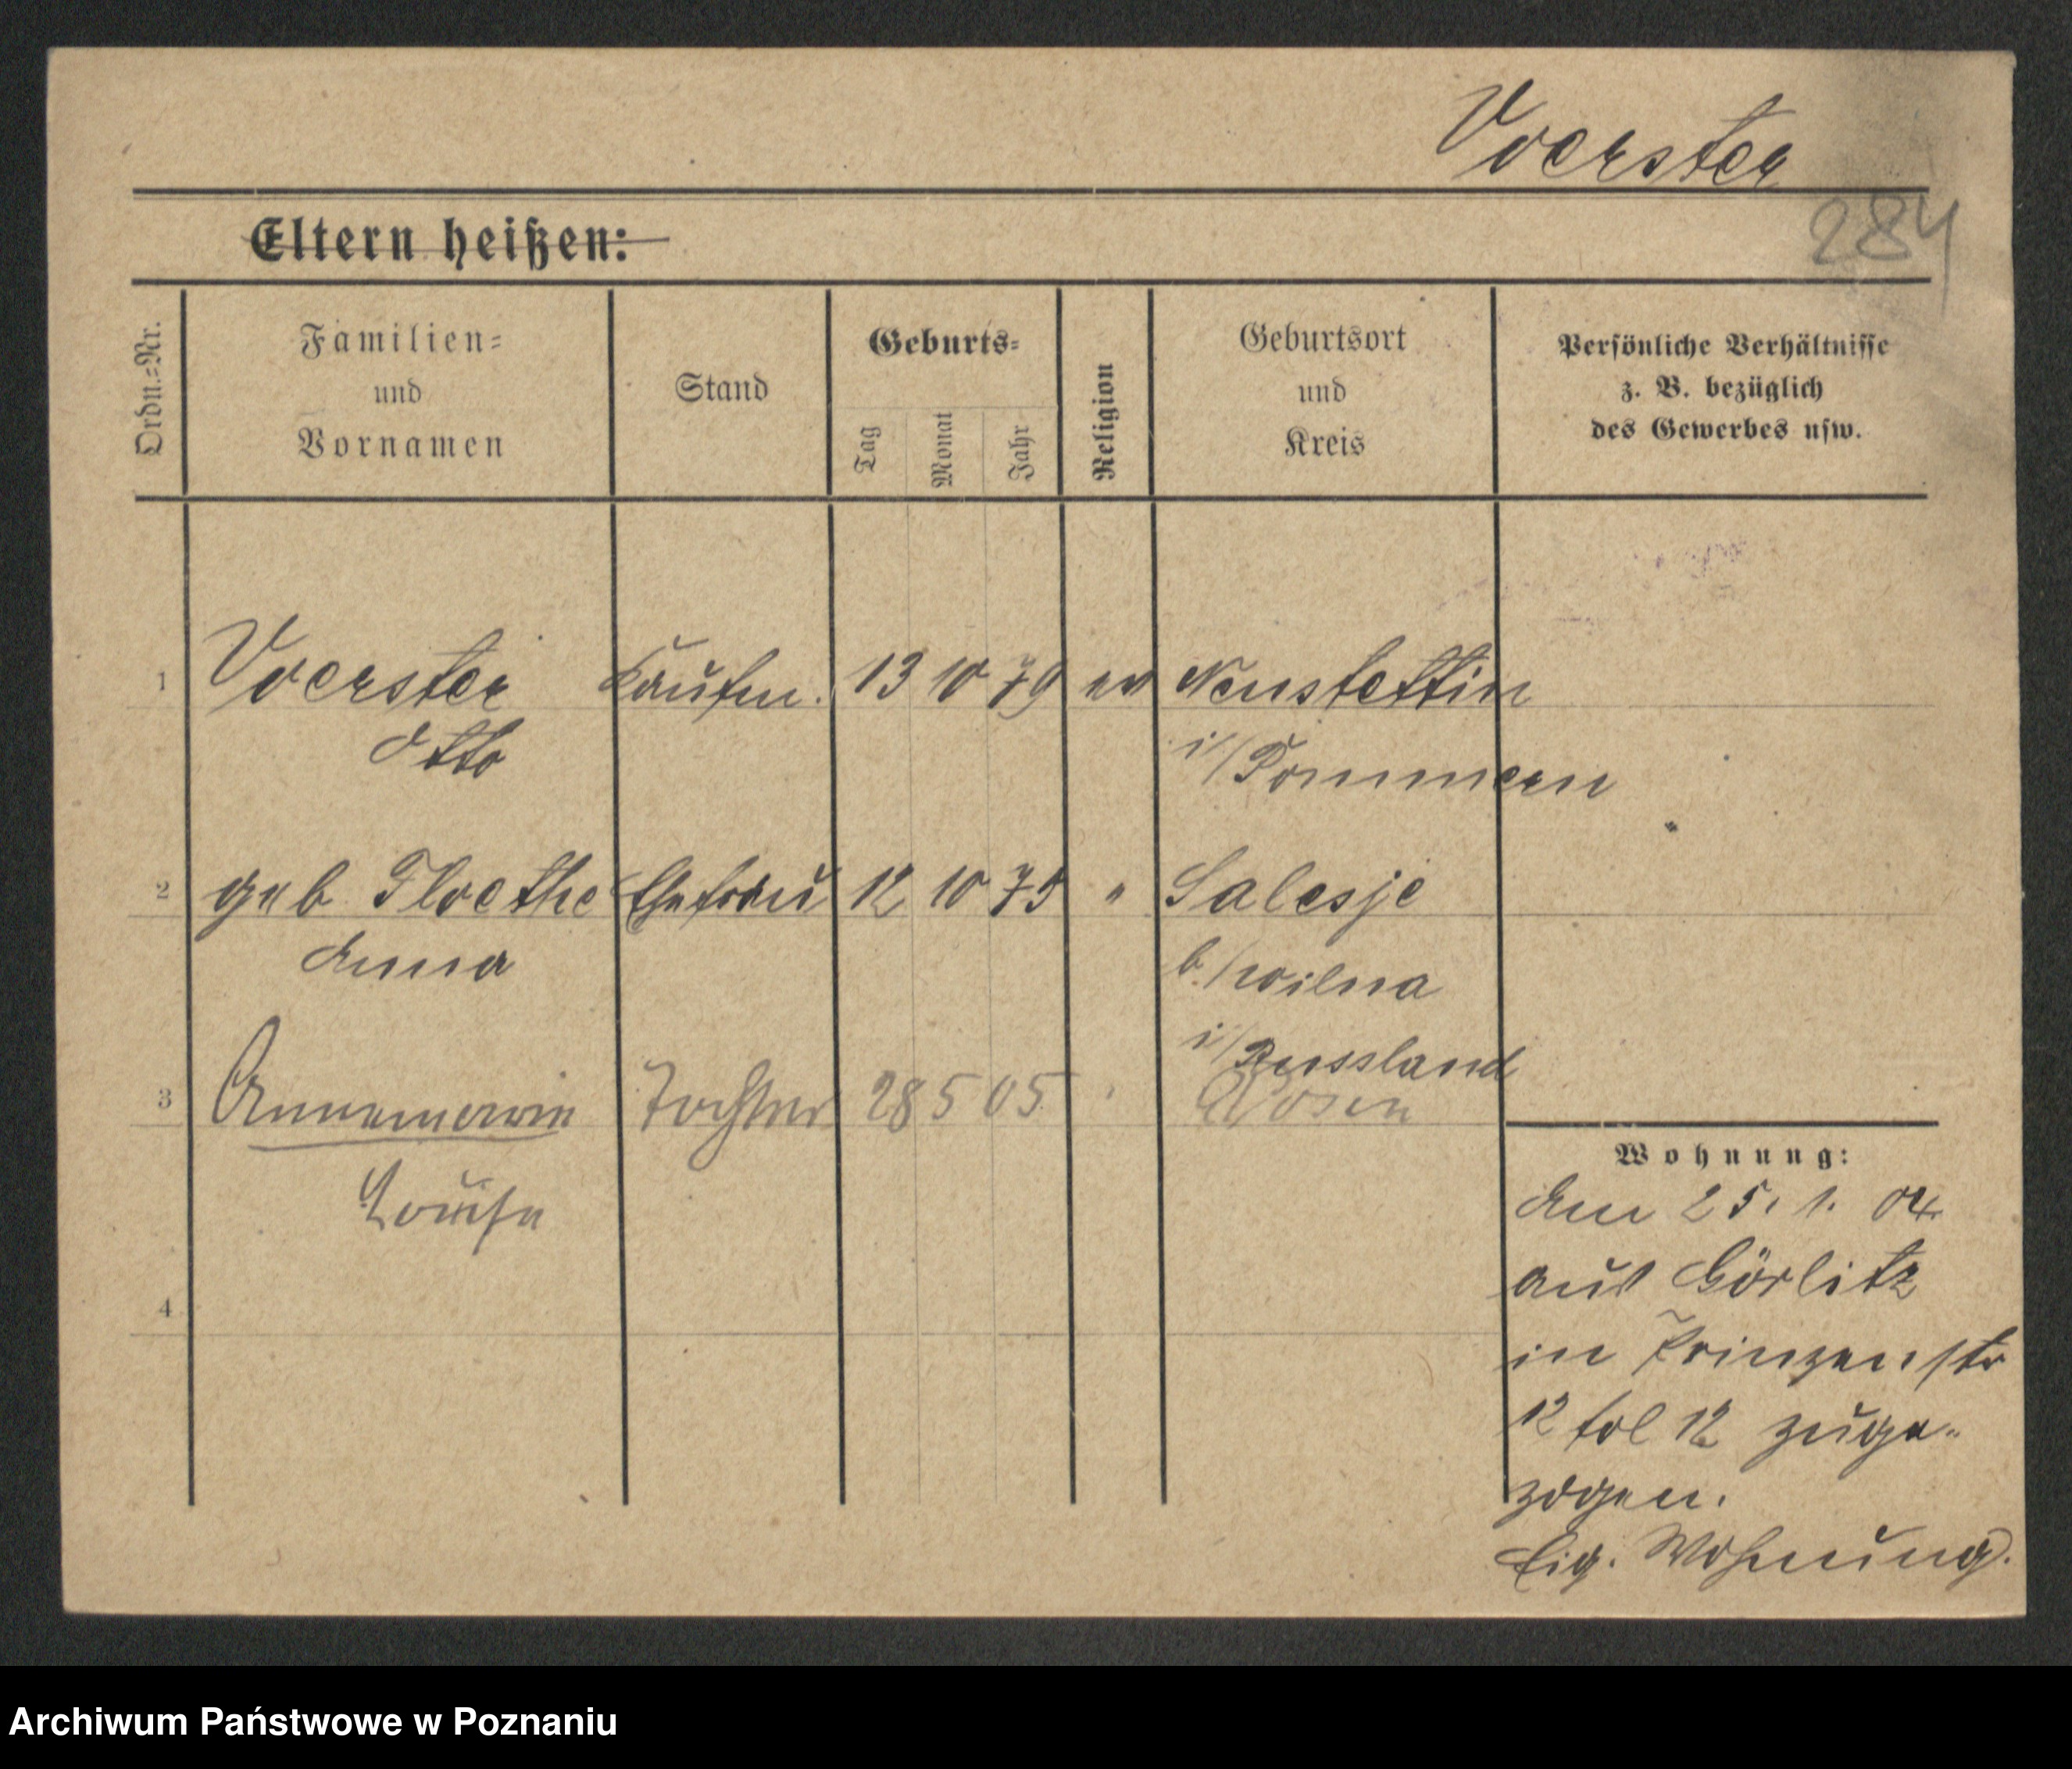 Voerster
284
Eltern heißen:
Ordn.-Nr.
Familien-
und
Vornamen
Stand
Geburts-
Tag
Monat
Jahr
Religion
Geburtsort
und
Kreis
Persönliche Verhältnisse
z. B. bezüglich
des Gewerbes usw.
1 Voerster Kaufm. 13 10 79 ev Neustettin
Otto i/Pommern
2 geb Floethe Ehefrau 12 10 75 " Salesje
Anna b./Wilna
i/Russland
3 Annemarie Tochter 28 5 05 Posen
Louise
4
Wohnung:
Am 25. 1. 04
aus Görlitz
in Prinzenstr
12 fol 12 zuge-
zogen.
Eig. Wohnung.
Archiwum Państwowe w Poznaniu